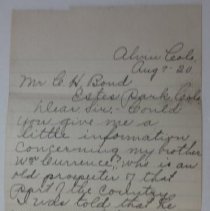 Alvin Colo,
Aug 9-20
Mr C. H. Bond
Estes Park Colo
Dear Sir:- Could
you give me a
little information
concerning my brother
Wm Currence, who is an
old prospector of that
part of the country
I was told that he